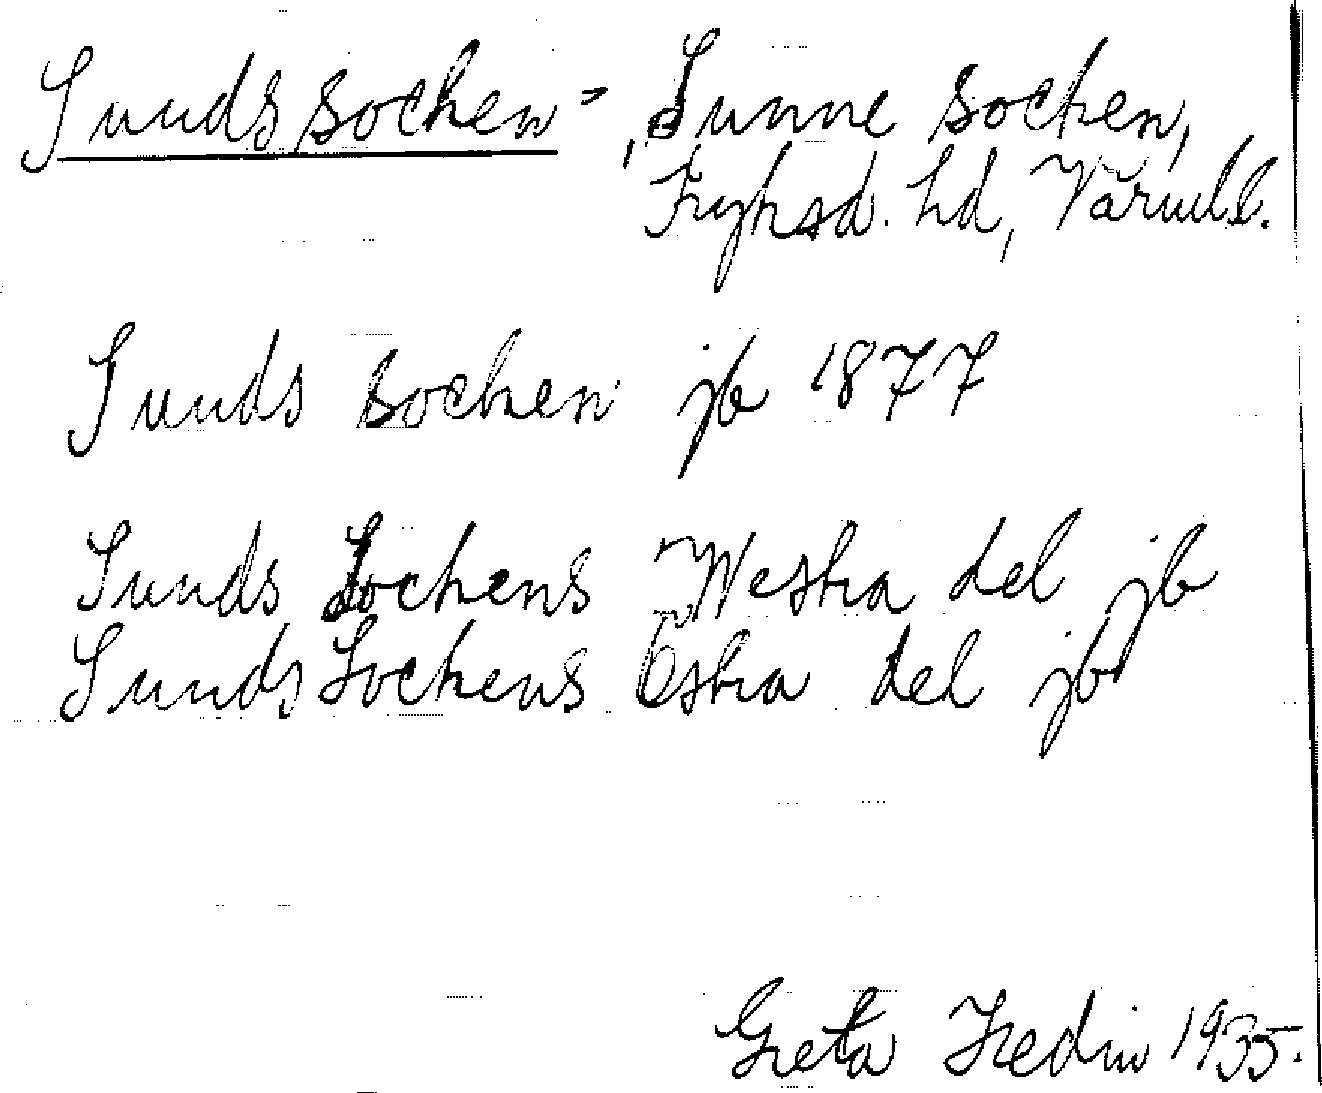 Sunds socken =, Sunne socken,
Fryksd. hd, Värml.
Sunds socken jb 1877
Sunds Sockens Westra del jb
Sunds Sockens Östra del jb
Greta Hedin 1935.